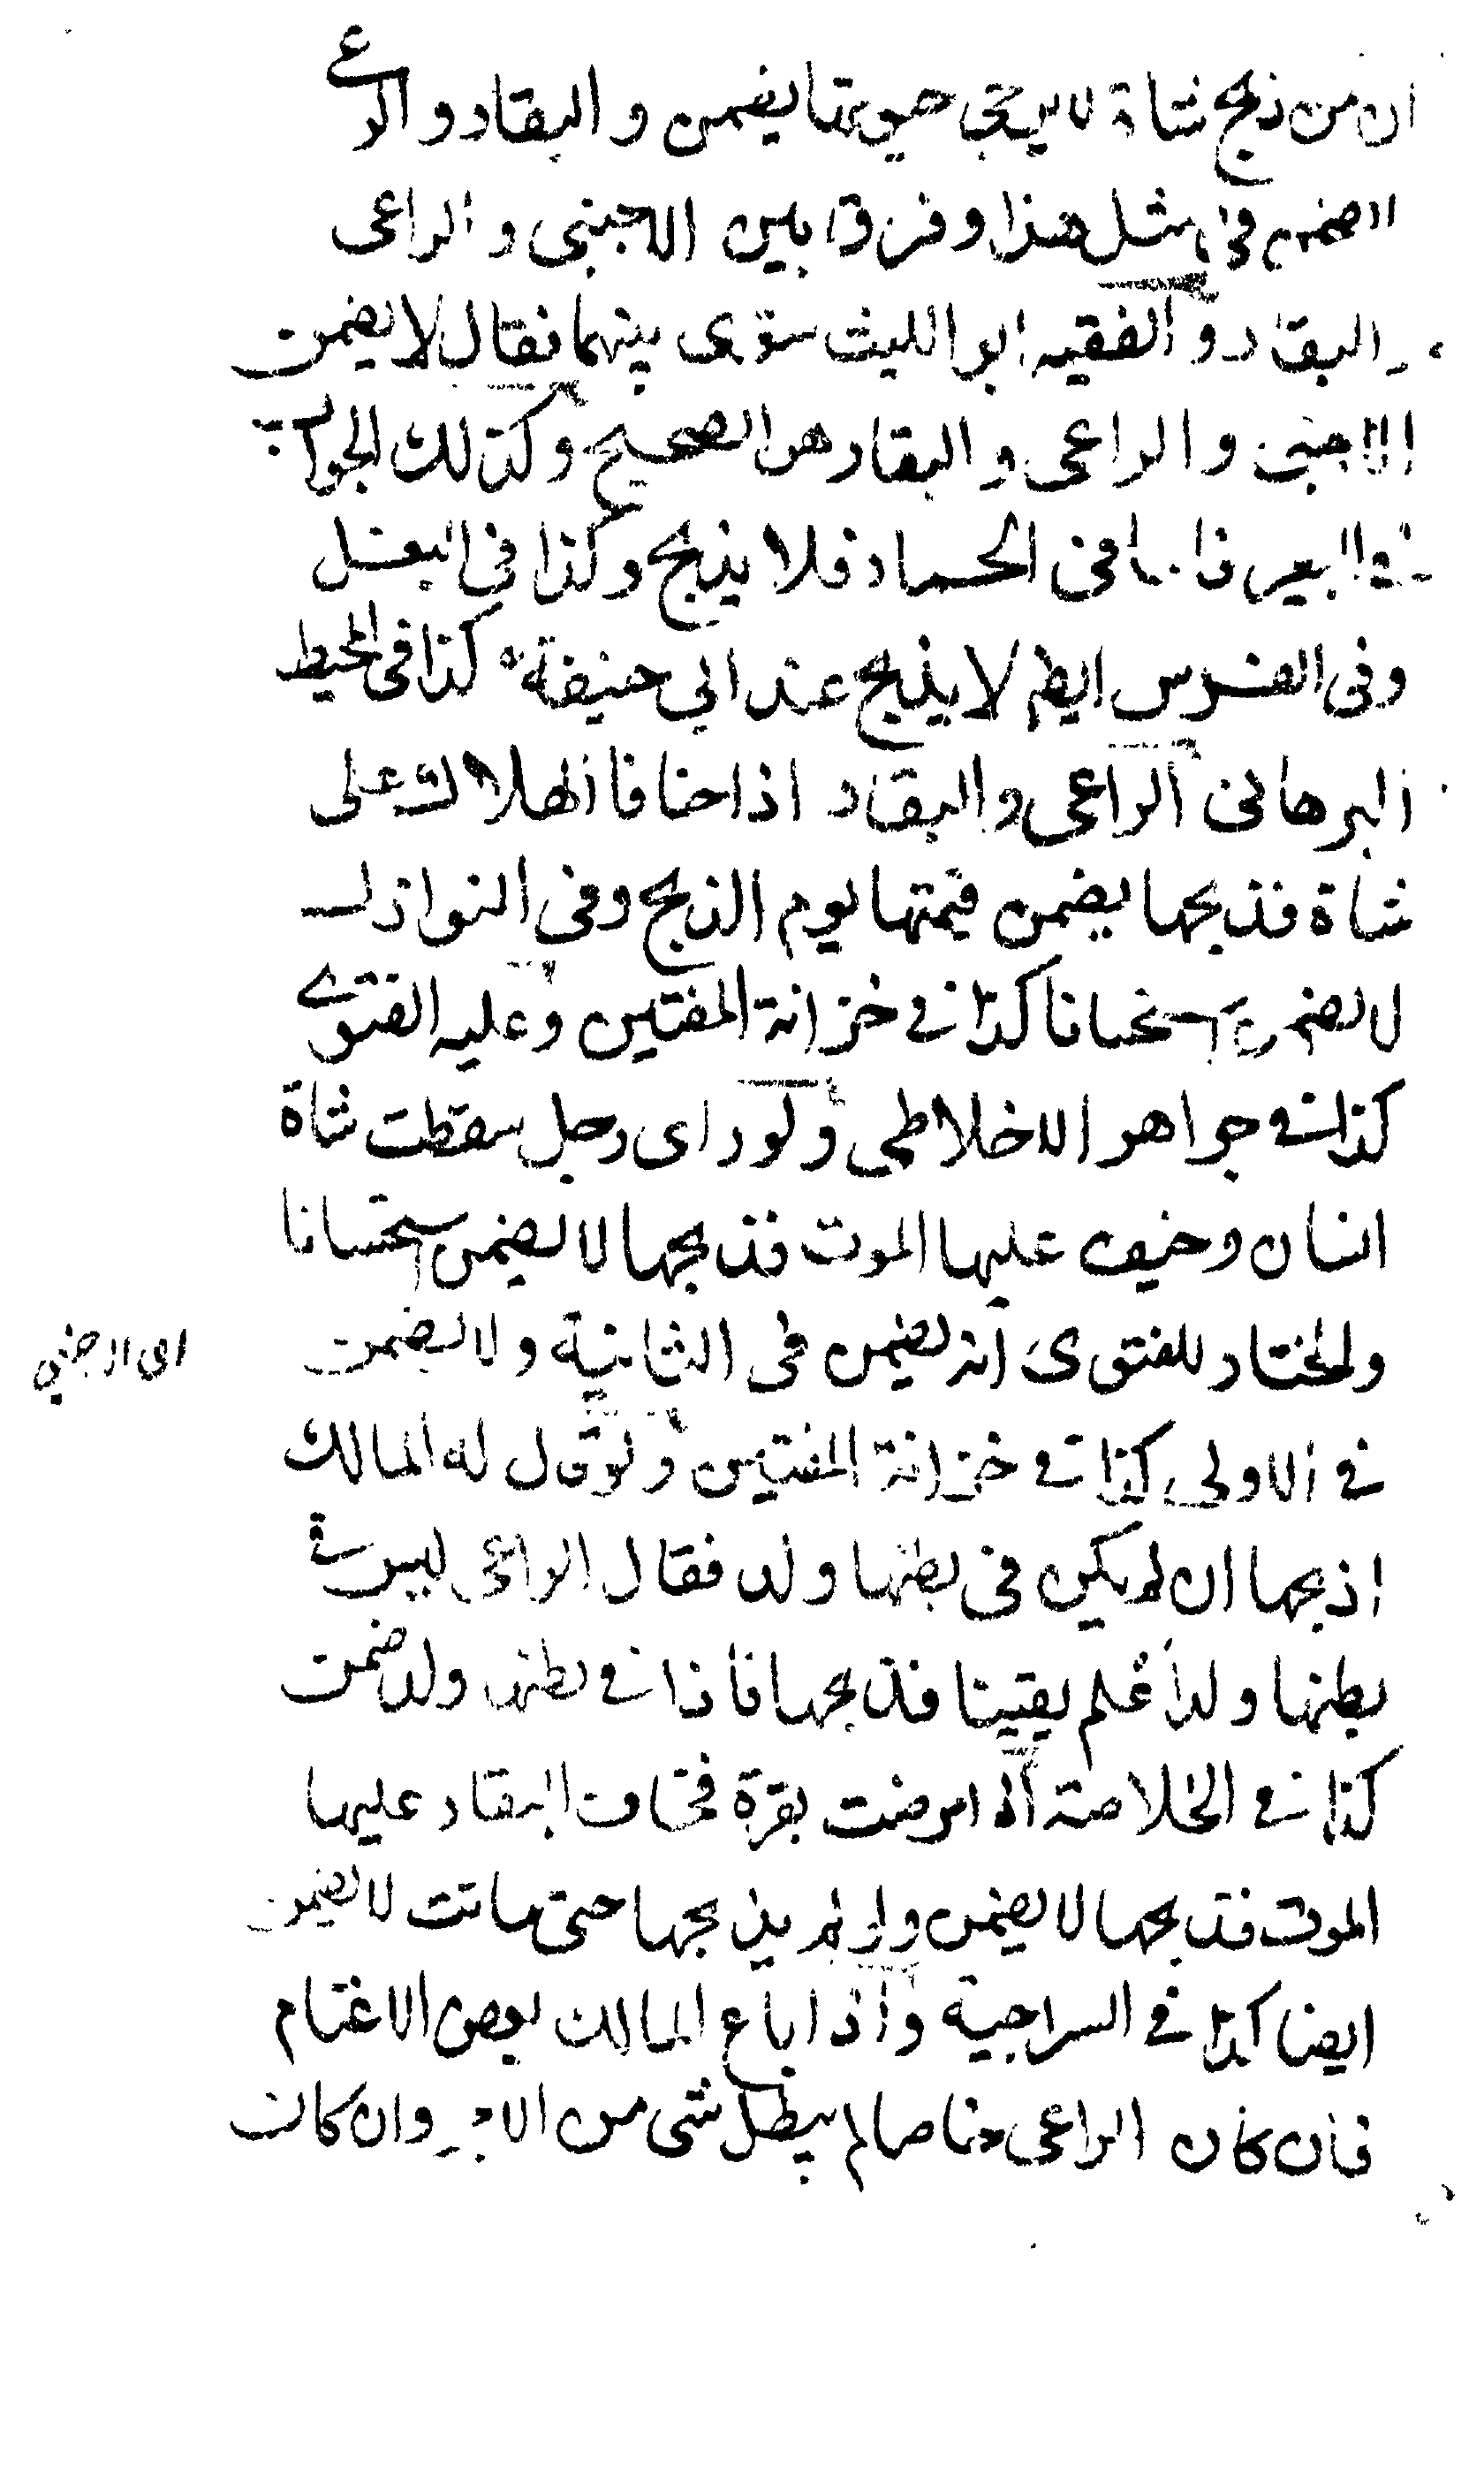 ان من ذبح شاة لا يرجى حيوتها يضمن والبقار والراعى
لا يضمن فى مثل هذا وفرق بين الاجنبى والراعى
والبقار والفقيه ابو الليث سوّى بينهما فقال لا يضمن
الاجنبى والراعى والبقار هو الصحيح وكذلك الجواب
فى البعير فاما فى الحمار فلا يذبح وكذا فى البغل
وفى الفرس ايضا لا يذبح عند ابي حنيفة كذا فى المحيط
البرهانى الراعى والبقار اذا خافا الهلاك على
شاة فذبحها يضمن قيمتها يوم الذبح وفى النوازل
لا يضمن استحسانا كذا فى خزانة المفتين وعليه الفتوى
كذا فى جواهر الاخلاطى ولو راى رجل سقطت شاة
انسان وخيف عليها الموت فذبحها لا يضمن استحسانا
والمختار للفتوى انه يضمن فى الثانية ولا يضمن
اى الاجنبي
فى الاولى كذا فى خزانة المفتين ولو قال له المالك
اذبحها ان لم يكن فى بطنها ولد فقال الراعى ليس فى
بطنها ولد اعلم يقينا فذبحها فاذا فى بطنها ولد ضمن
كذا فى الخلاصة اذا مرضت بقرة فخاف البقار عليها
الموت فذبحها لا يضمن وان لم يذبحها حتى ماتت لا يضمن
ايضا كذا فى السراجية واذا باع المالك بعض الاغنام
فان كان الراعى خاصا لم يبطل شى من الاجر وان كان